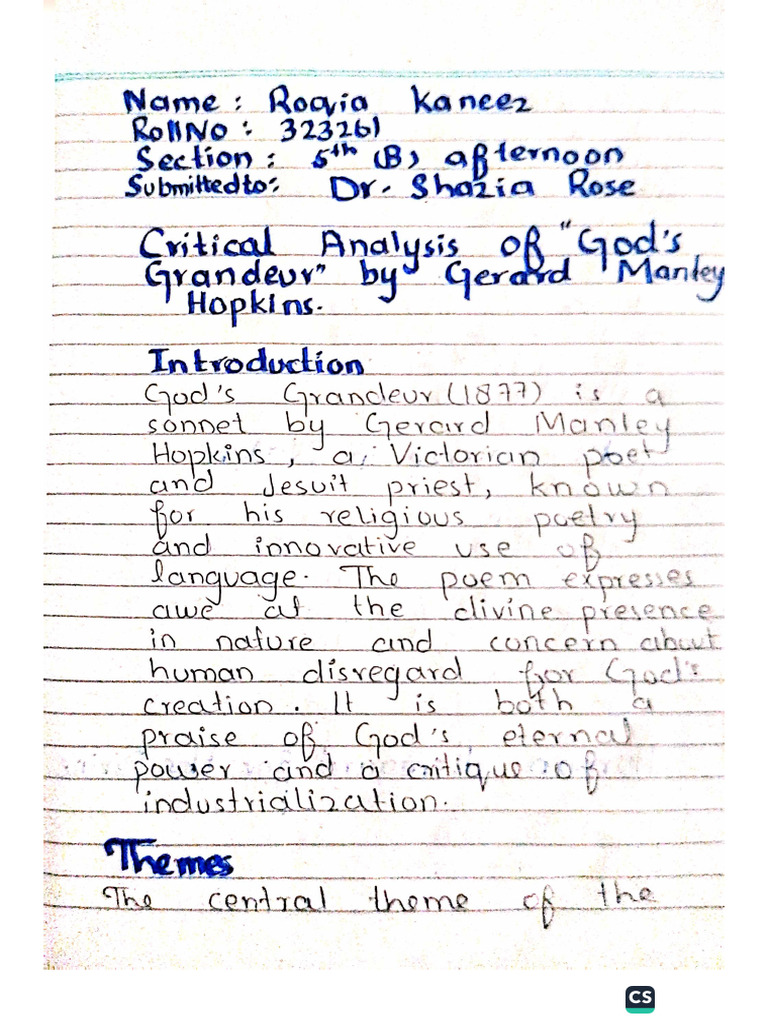 Name: Roqia Kaneez
Roll No: 323261
Section: 5th (B), afternoon
Submitted to: Dr. Shazia Rose
Critical Analysis of "God's
Grandeur" by Gerard Manley
Hopkins.
Introduction
God's Grandeur (1877) is a
sonnet by Gerard Manley
Hopkins, a Victorian poet
and Jesuit priest, known
for his religious poetry
and innovative use of
language. The poem expresses
awe at the divine presence
in nature and concern about
human disregard for God's
creation. It is both a
praise of God's eternal
power and a critique of
industrialization.
Themes
The central theme of the
CS